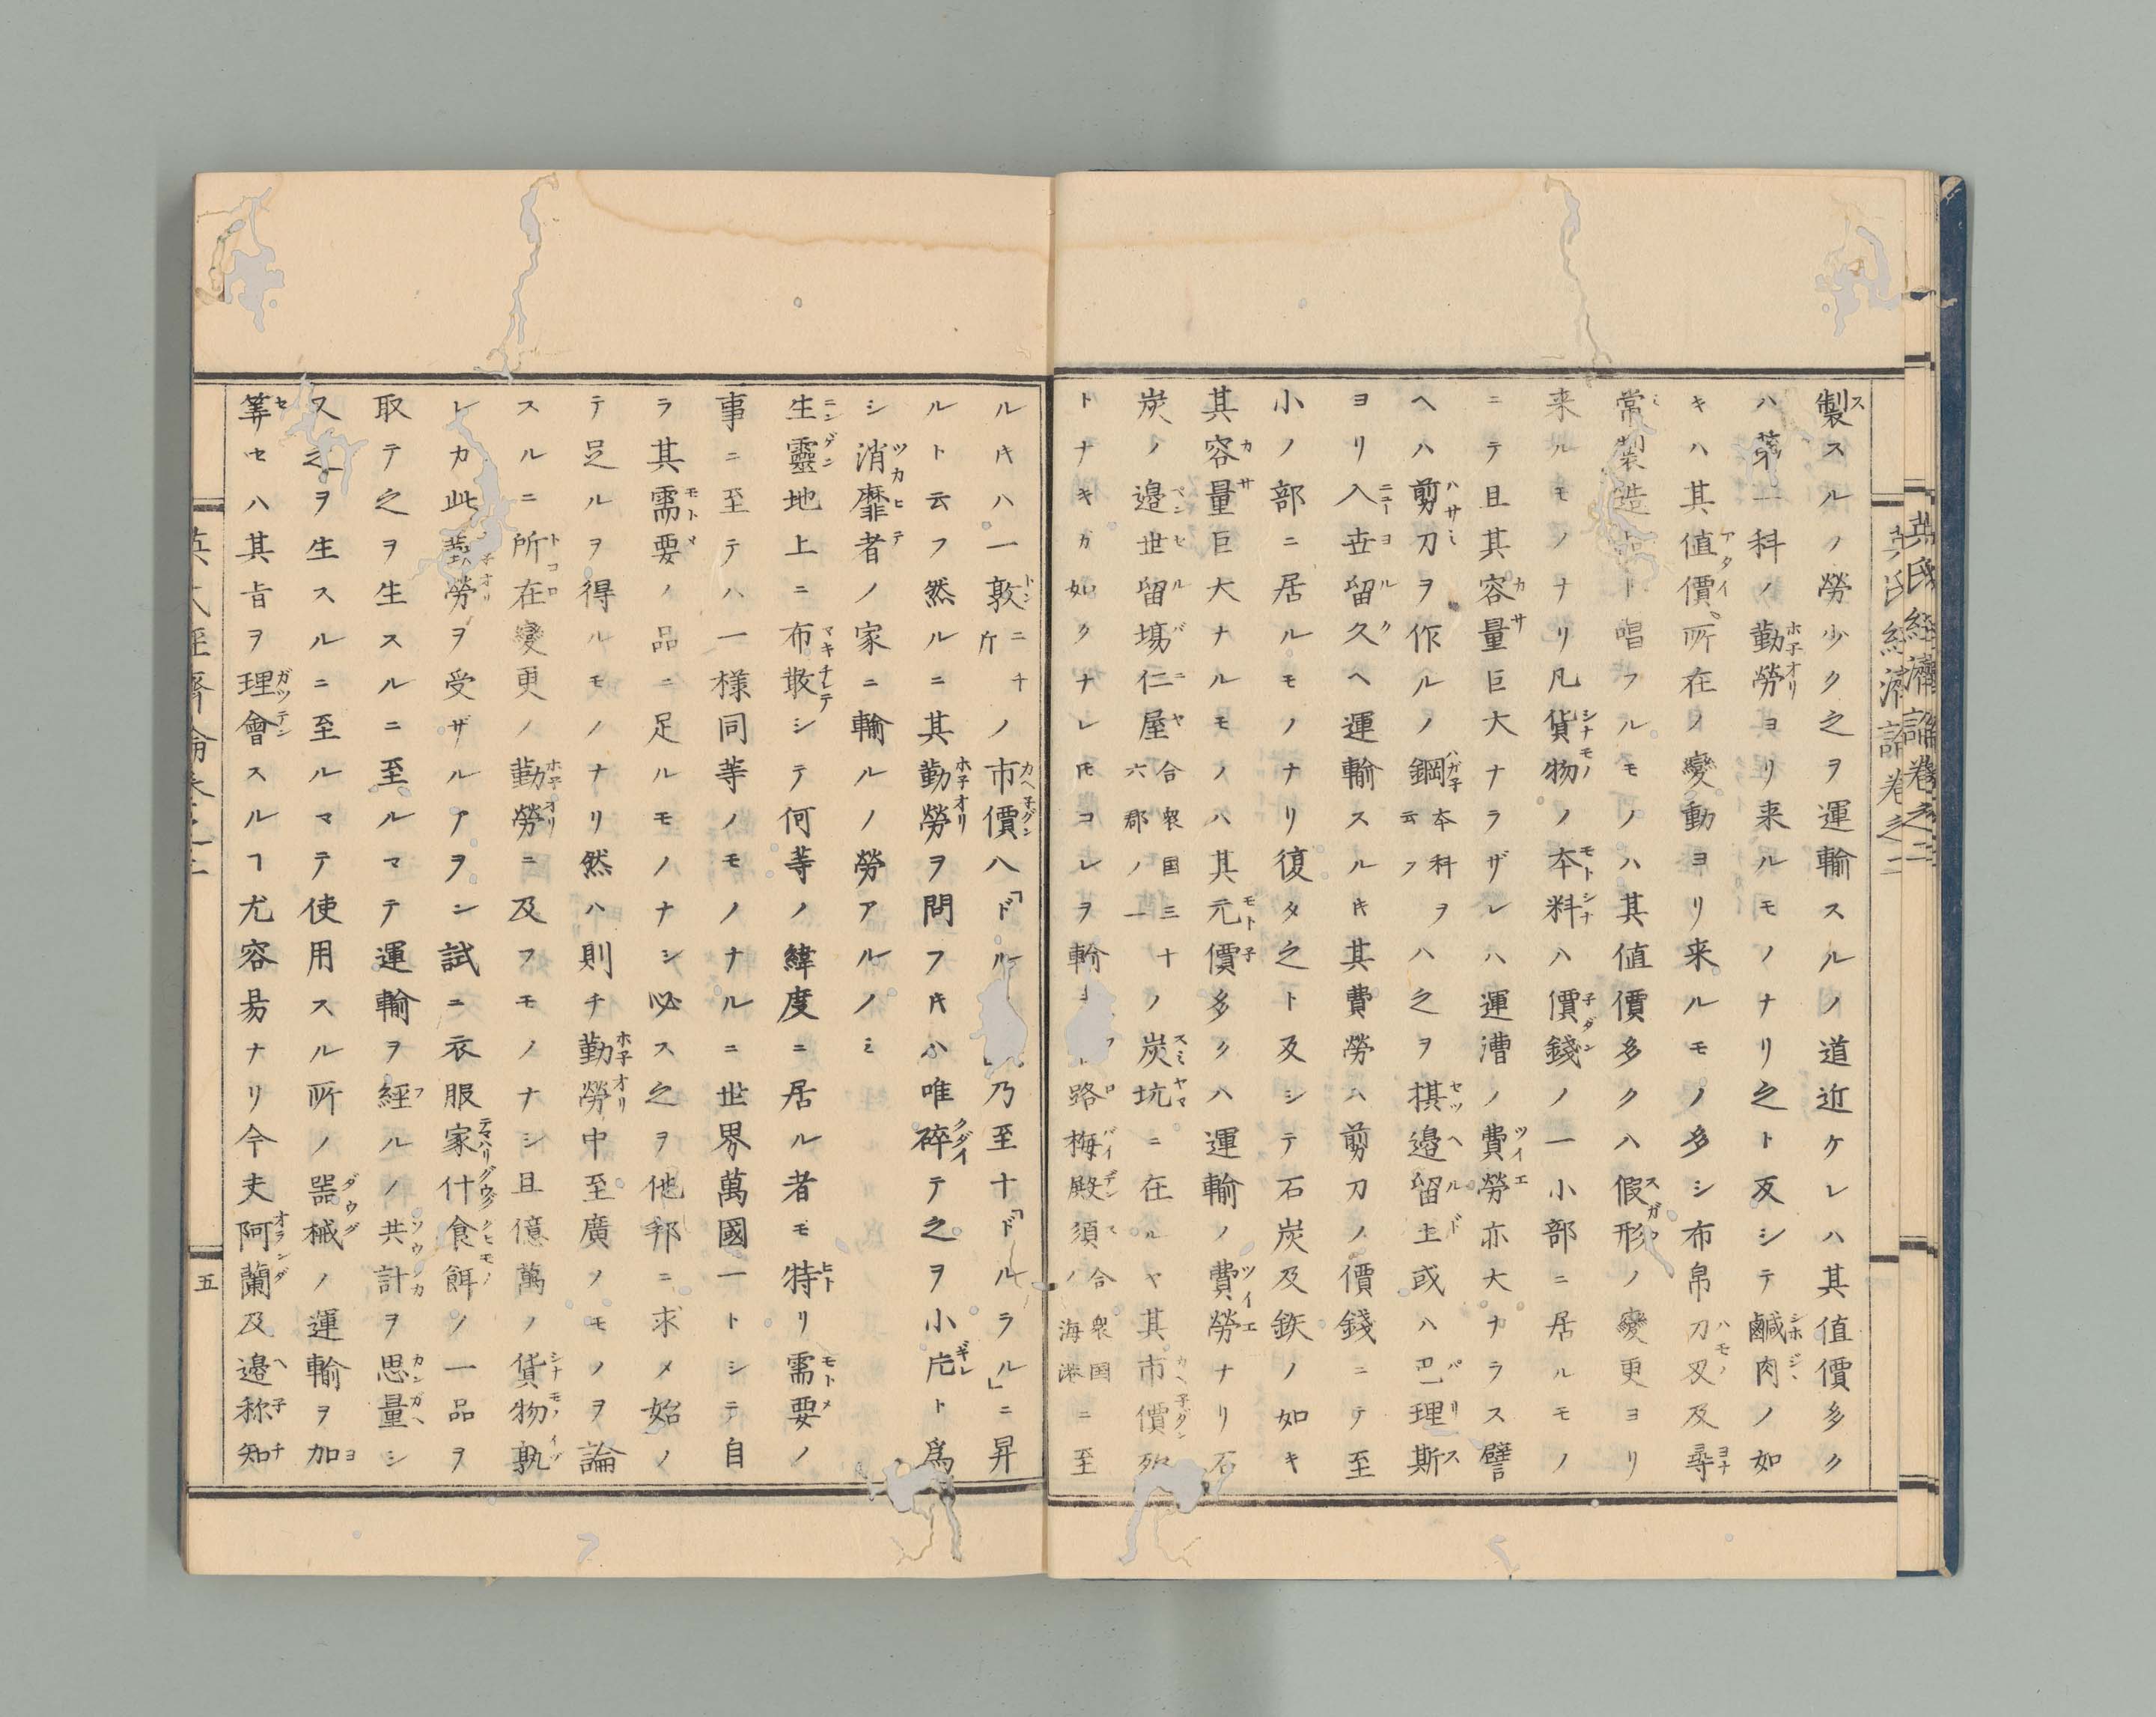 英氏經濟論卷之二
製スルノ勞少ク之ヲ運輸スルノ道近ケレハ其値價多ク
ハ第一科ノ勤勞ヨリ来ルモノナリ之ト反シテ鹹肉ノ如
キハ其値價所在ノ變動ヨリ来ルモノ多シ布帛刀及及尋
常製造品ト唱フルモノハ其値價多クハ假形ノ變更ヨリ
来ルモノナリ凡貨物ノ本料ハ價錢ノ一小部ニ居ルモノ
ニテ且其容量巨大ナラザレハ運漕ノ費勞亦大ナラス譬
ヘハ剪刀ヲ作ルノ鋼本科ヲ云フハ之ヲ棋邉留土或ハ巴理斯
ヨリ入世留久ヘ運輸スルキ其費勞ハ剪刀ノ價錢ニテ至
小ノ部ニ居ルモノナリ復タ之ト反シテ石炭及鉃ノ如キ
其容量巨大ナルモノハ其元價多クハ運輸ノ費勞ナリ石
炭ノ邉世留塲仁屋合衆国三十六郡ノ一ノ炭坑ニ在ルヤ其市價殆
トナキガ如クナレ𪜈コレヲ輸路梅殿須合衆国ノ海港ニ至
ルキハ一敦ニ十斤ノ市價八「ドル」乃至十「ドルラル」ニ昇
ルト云フ然ルニ其勤勞ヲ問フキハ唯碎テ之ヲ小片ト爲
シ消靡者ノ家ニ輸ルノ勞アルノミ
生靈地上ニ布散シテ何等ノ緯度ニ居ル者モ特リ需要ノ
事ニ至テハ一樣同等ノモノナルニ世界萬國一トシテ自
ラ其需要ノ品ニ足ルモノナシ必ス之ヲ他邦ニ求メ始ノ
テ足ルヲ得ルモノナリ然ハ則チ勤勞中至廣ノモノヲ論
スルニ所在變更ノ勤勞ニ及フモノナシ且億萬ノ貨物孰
レカ此勤勞ヲ受ザルアヲン試ニ衣服家什食餌ノ一品ヲ
取テ之ヲ生スルニ至ルマテ運輸ヲ經ルノ共計ヲ思量シ
又之ヲ生スルニ至ルマテ使用スル所ノ器械ノ運輸ヲ加
筭セハ其旨ヲ理會スルヿ尤容昜ナリ今夫阿蘭及邉称知
五